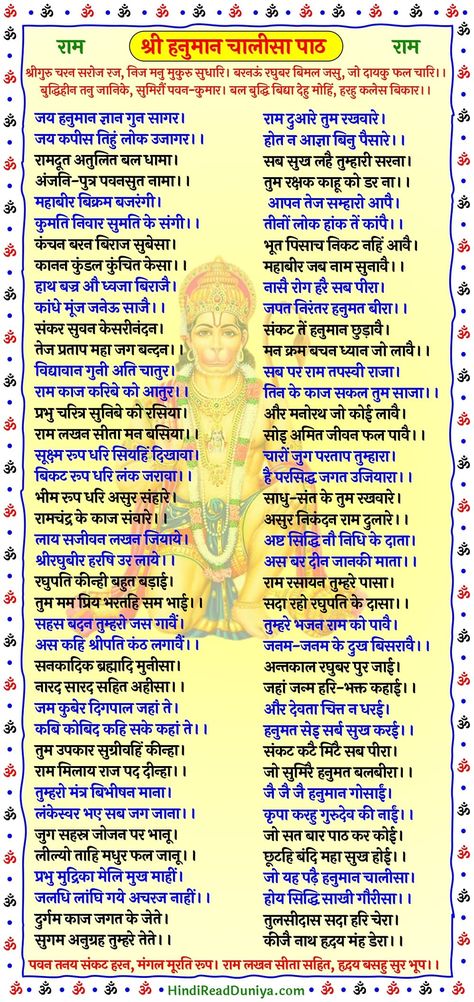 राम श्री हनुमान चालीसा पाठ राम
श्रीगुरु चरन सरोज रज, निज मनु मुकुरु सुधारि। बरनऊं रघुबर बिमल जसु, जो दायकु फल चारि।।
बुद्धिहीन तनु जानिके, सुमिरौं पवन-कुमार। बल बुद्धि बिद्या देहु मोहिं, हरहु कलेस बिकार।।
जय हनुमान ज्ञान गुन सागर।
जय कपीस तिहुं लोक उजागर।।
रामदूत अतुलित बल धामा।
अंजनि-पुत्र पवनसुत नामा।।
महाबीर बिक्रम बजरंगी।
कुमति निवार सुमति के संगी।।
कंचन बरन बिराज सुबेसा।
कानन कुंडल कुंचित केसा।।
हाथ बज्र औ ध्वजा बिराजै।
कांधे मूंज जनेऊ साजै।।
संकर सुवन केसरीनंदन।
तेज प्रताप महा जग बन्दन।।
विद्यावान गुनी अति चातुर।
राम काज करिबे को आतुर।।
प्रभु चरित्र सुनिबे को रसिया।
राम लखन सीता मन बसिया।।
सूक्ष्म रूप धरि सियहिं दिखावा।
बिकट रूप धरि लंक जरावा।।
भीम रूप धरि असुर संहारे।
रामचंद्र के काज संवारे।।
लाय सजीवन लखन जियाये।
श्रीरघुबीर हरषि उर लाये।।
रघुपति कीन्ही बहुत बड़ाई।
तुम मम प्रिय भरतहि सम भाई।।
सहस बदन तुम्हरो जस गावैं।
अस कहि श्रीपति कंठ लगावैं।।
सनकादिक ब्रह्मादि मुनीसा।
नारद सारद सहित अहीसा।।
जम कुबेर दिगपाल जहां ते।
कबि कोबिद कहि सके कहां ते।।
तुम उपकार सुग्रीवहिं कीन्हा।
राम मिलाय राज पद दीन्हा।।
तुम्हरो मंत्र बिभीषन माना।
लंकेस्वर भए सब जग जाना।।
जुग सहस्र जोजन पर भानू।
लील्यो ताहि मधुर फल जानू।।
प्रभु मुद्रिका मेलि मुख माहीं।
जलधि लांघि गये अचरज नाहीं।।
दुर्गम काज जगत के जेते।
सुगम अनुग्रह तुम्हरे तेते।।
राम दुआरे तुम रखवारे।
होत न आज्ञा बिनु पैसारे।।
सब सुख लहै तुम्हारी सरना।
तुम रक्षक काहू को डर ना।।
आपन तेज सम्हारो आपै।
तीनों लोक हांक तें कांपै।।
भूत पिसाच निकट नहिं आवै।
महाबीर जब नाम सुनावै।।
नासै रोग हरै सब पीरा।
जपत निरंतर हनुमत बीरा।।
संकट तें हनुमान छुड़ावै।
मन क्रम बचन ध्यान जो लावै।।
सब पर राम तपस्वी राजा।
तिन के काज सकल तुम साजा।।
और मनोरथ जो कोई लावै।
सोइ अमित जीवन फल पावै।।
चारों जुग परताप तुम्हारा।
है परसिद्ध जगत उजियारा।।
साधु-संत के तुम रखवारे।
असुर निकंदन राम दुलारे।।
अष्ट सिद्धि नौ निधि के दाता।
अस बर दीन जानकी माता।।
राम रसायन तुम्हरे पासा।
सदा रहो रघुपति के दासा।।
तुम्हरे भजन राम को पावै।
जनम-जनम के दुख बिसरावै।।
अन्तकाल रघुबर पुर जाई।
जहां जन्म हरि-भक्त कहाई।।
और देवता चित्त न धरई।
हनुमत सेइ सर्ब सुख करई।।
संकट कटै मिटै सब पीरा।
जो सुमिरै हनुमत बलबीरा।।
जै जै जै हनुमान गोसाईं।
कृपा करहु गुरुदेव की नाईं।।
जो सत बार पाठ कर कोई।
छूटहि बंदि महा सुख होई।।
जो यह पढ़ै हनुमान चालीसा।
होय सिद्धि साखी गौरीसा।।
तुलसीदास सदा हरि चेरा।
कीजै नाथ हृदय मंह डेरा।।
पवन तनय संकट हरन, मंगल मूरति रूप। राम लखन सीता सहित, हृदय बसहु सुर भूप।।
HindiReadDuniya.com